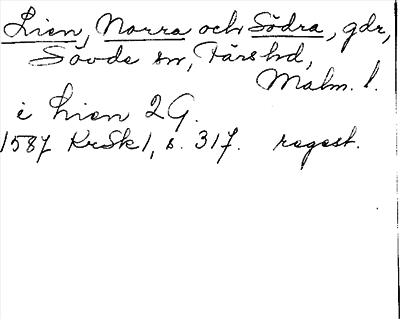 Lien, Norra och Södra, gdr,
Sövde sn, Färs hd,
Malm. l.
i Lien 2 G.
1587 KrSk 1, s. 317. regest.